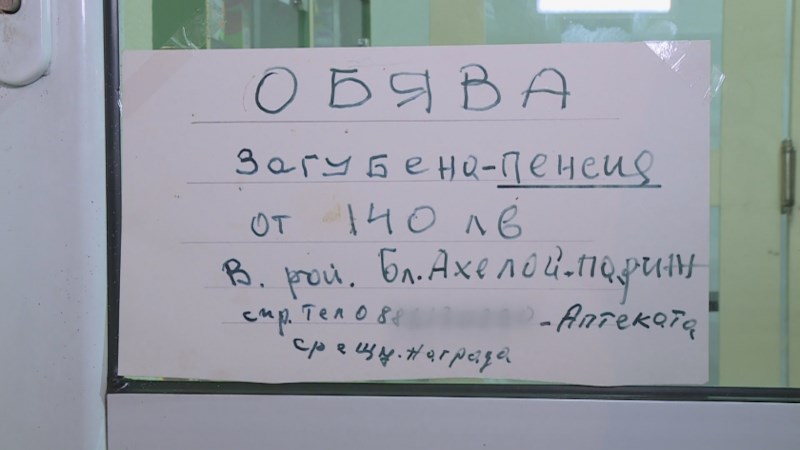 ОБЯВА
Загубена-пенсия
от 140 лв
В. рай. Бл. Ахелой-Париж
спр. Тел 088 -Аптеката
срещу. награда